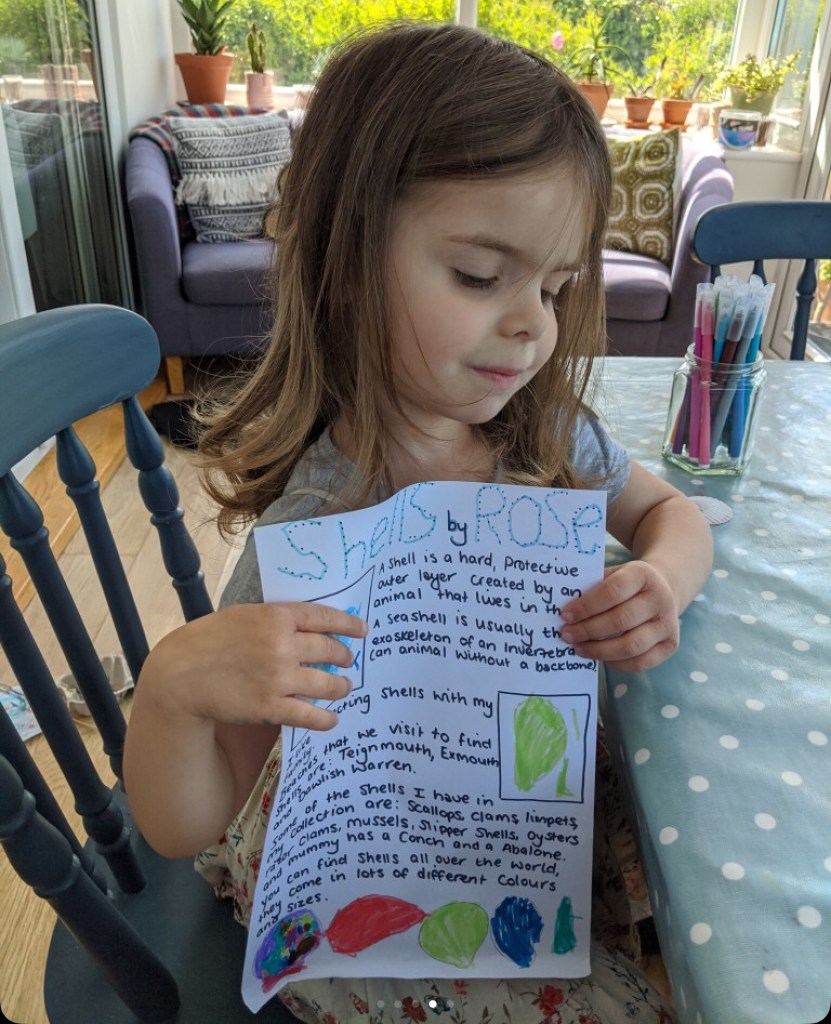 Shells by ROSE
A Shell is a hard, Protective
outer layer created by an
animal that lives in
A Seashell is usually
exoskeleton of an Invertebra
(an animal without a backbone)
cting Shells with my
I like
family.
Beaches that we visit to find
Shells are: Teignmouth, Exmouth
and Dawlish Warren.
Some of the Shells I have in
my collection are: Scallops, Clams, limpets,
razor clams, mussels, Slipper Shells, oysters
and mummy has a Conch and a Abalone.
you can find Shells all over the World,
they come in lots of different Colours
and sizes.